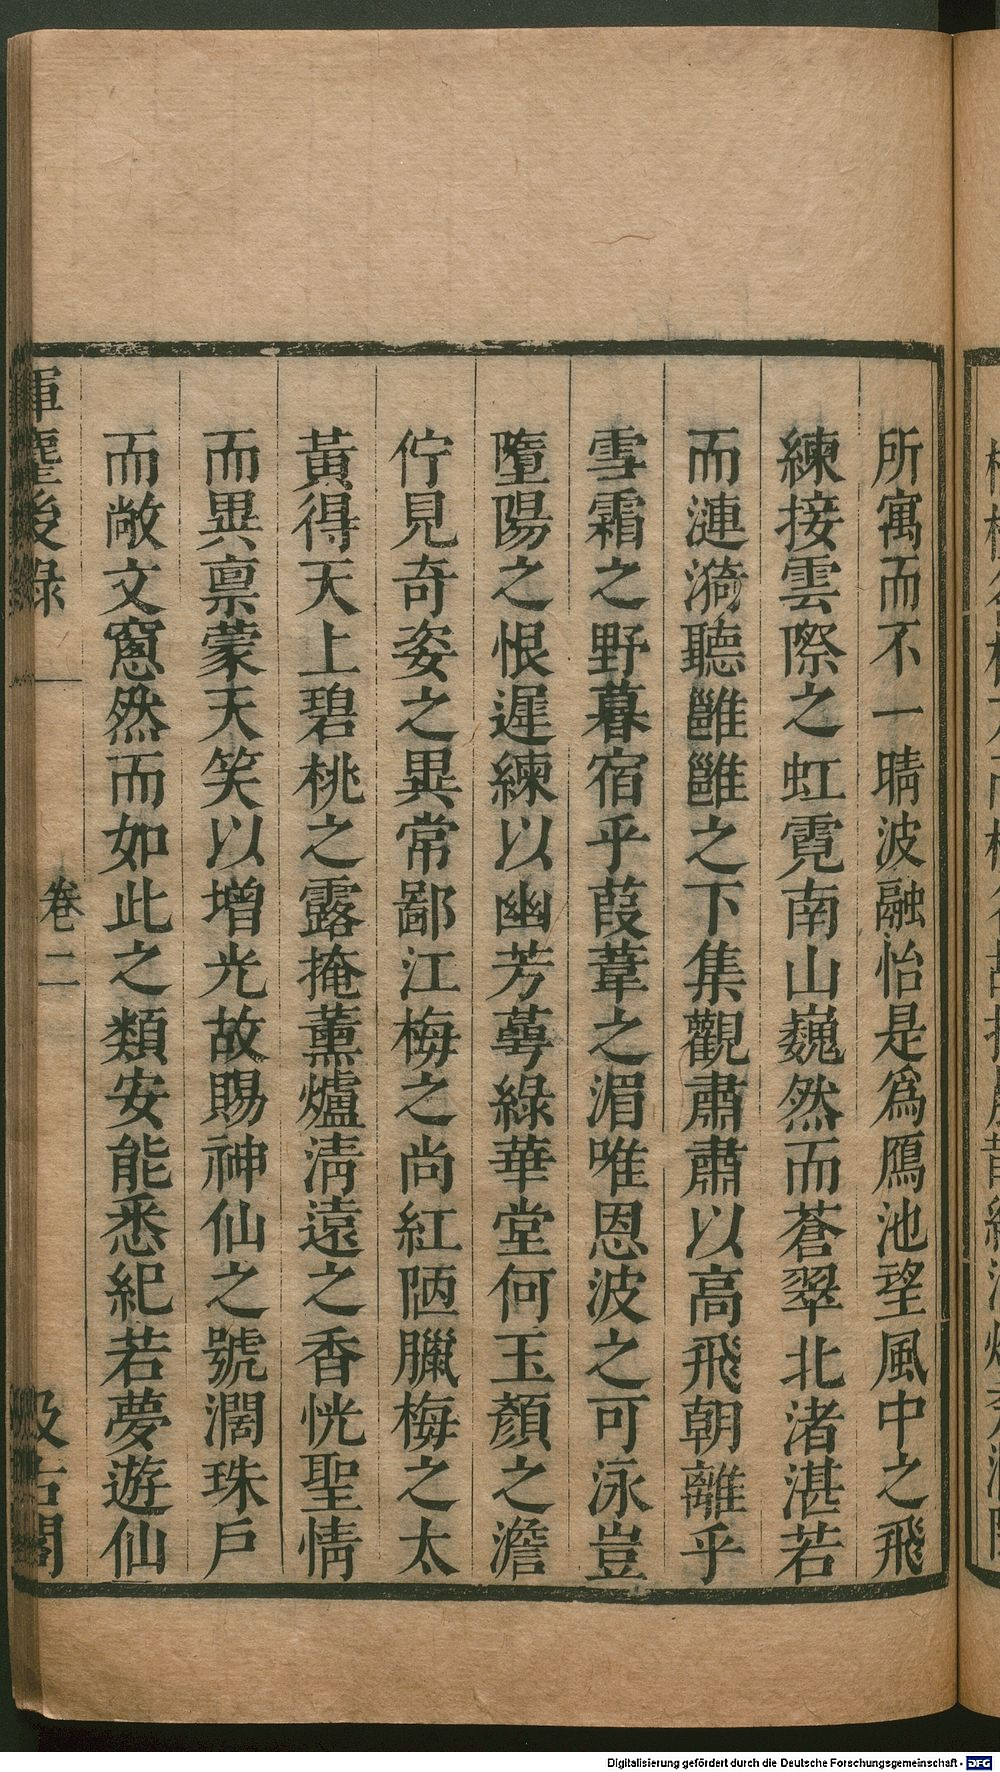 所寓而不一晴波融怡是爲鴈池望風中之飛
練接雲際之虹霓南山巍然而蒼翠北渚湛若
而漣漪聽雝雝之下集觀肅肅以高飛朝離乎
雪霜之野暮宿乎葭葦之湄唯恩波之可泳豈
墮陽之恨遲練以幽芳蕚綠華堂何玉顏之澹
佇見奇姿之異常鄙江梅之尚紅陋臘梅之太
黃得天上碧桃之露掩薰爐淸遠之香恍聖情
而異禀蒙天笑以增光故賜神仙之號濶珠戶
而敞文窻然而如此之類安能悉紀若夢遊仙
揮麈後錄
卷二
汲古閣
Digitalisierung gefördert durch die Deutsche Forschungsgemeinschaft - DFG